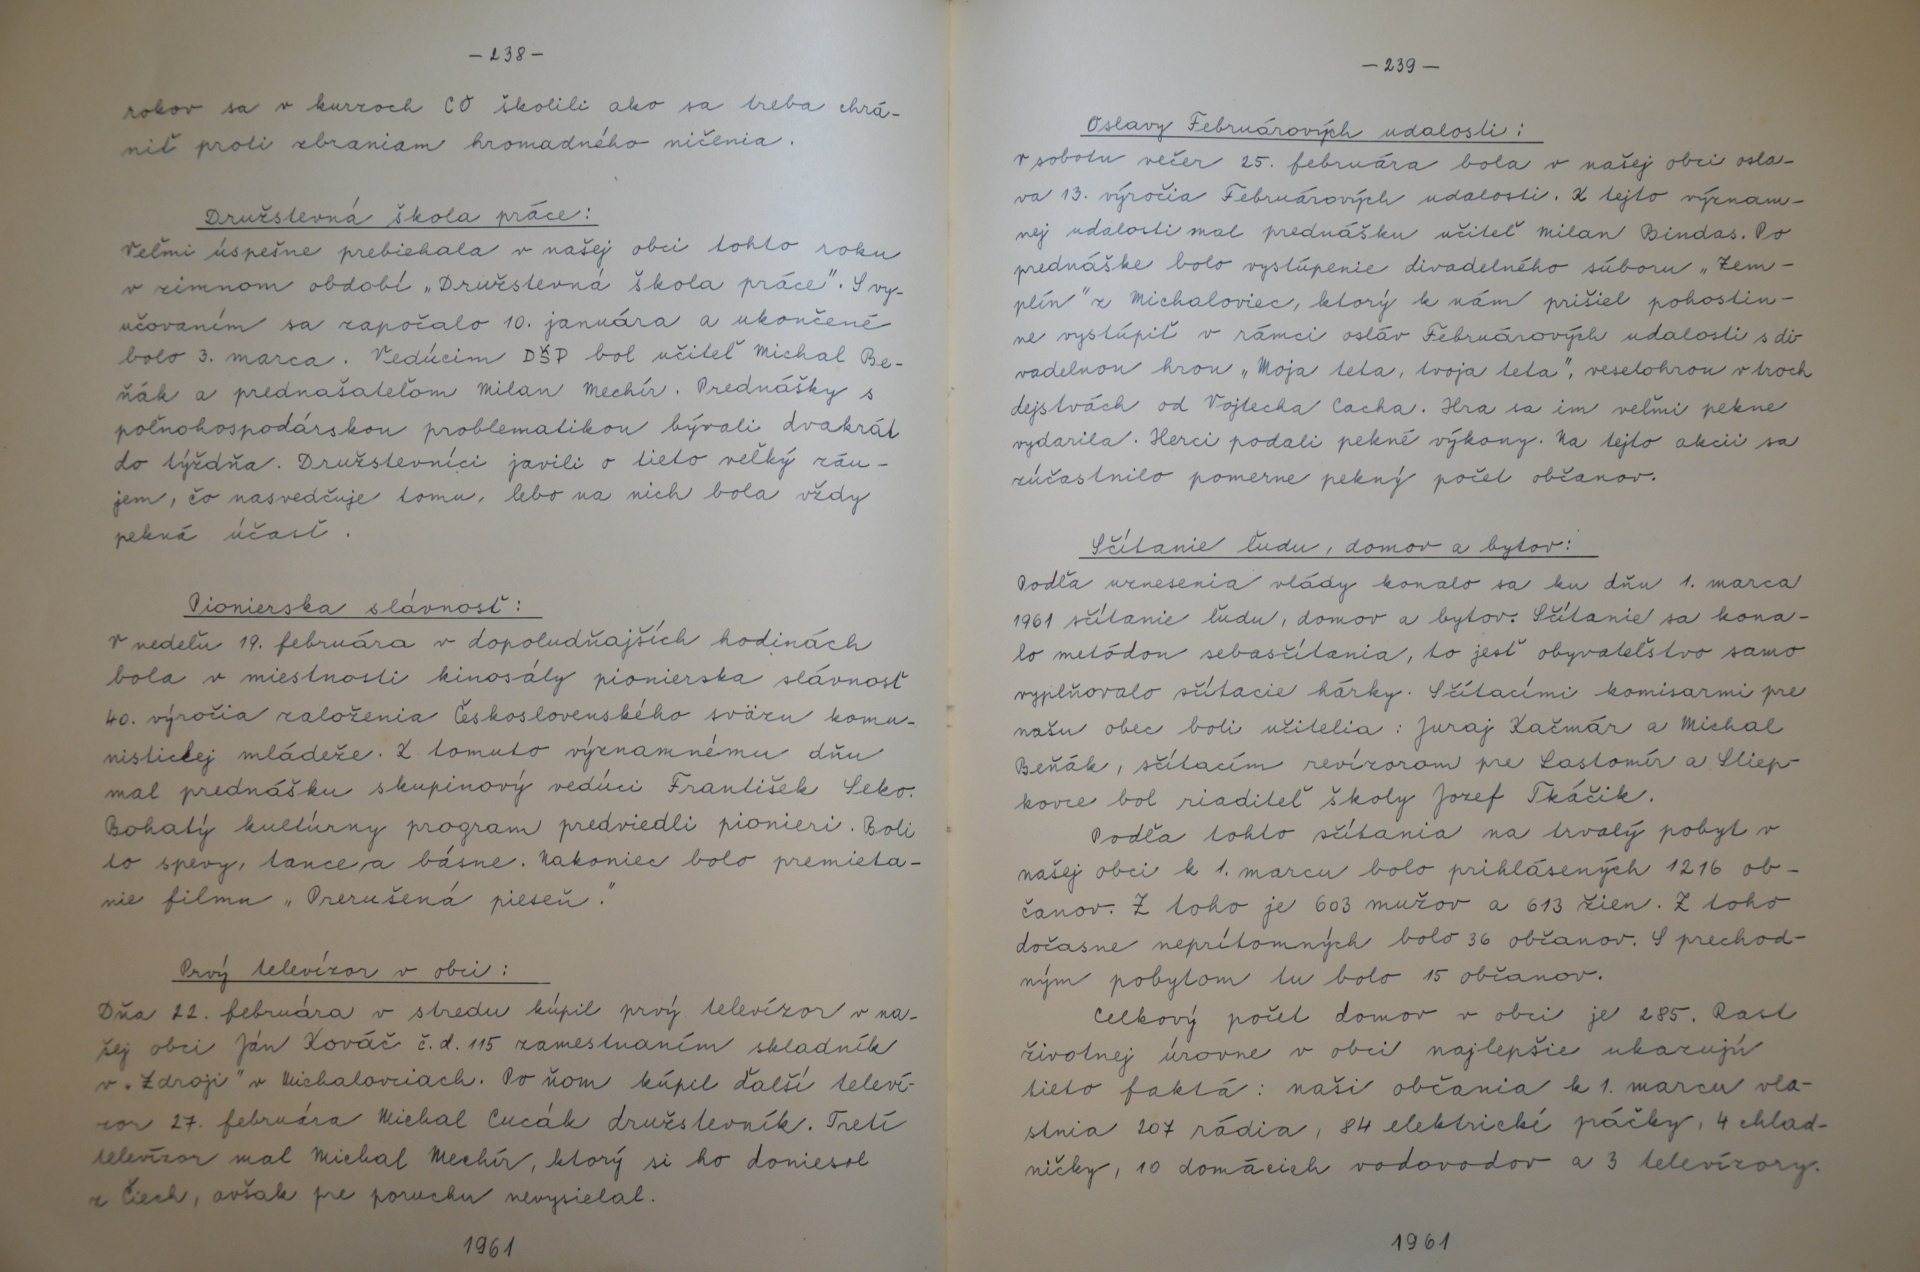 -238-
rokov sa v kurzoch CO školili ako sa treba chrá-
niť proti zbraniam hromadného ničenia.
Družstevná škola práce:
Veľmi úspešne prebiehala v našej obci tohto roku
v zimnom období „Družstevná škola práce". S vy-
učovaním sa započalo 10. januára a ukončené
bolo 3. marca. Vedúcim DŠP bol učiteľ Michal Be-
ňák a prednašateľom Milan Mechír. Prednášky s
poľnohospodárskou problematikou bývali dvakrát
do týždňa. Družstevníci javili o tieto veľký záu-
jem, čo nasvedčuje tomu, lebo na nich bola vždy
pekná účasť.
Pionierska slávnosť:
V nedeľu 19. februára v dopoludňajších hodinách
bola v miestnosti kinosály pionierska slávnosť
40. výročia založenia Československého sväzu komu-
nistickej mládeže. K tomuto významnému dňu
mal prednášku skupinový vedúci František Seko.
Bohatý kultúrny program predviedli pionieri. Boli
to spevy, tance a básne. Nakoniec bolo premieta-
nie filmu „Prerušená pieseň."
Prvý televízor v obci:
Dňa 22. februára v stredu kúpil prvý televízor v na-
šej obci Ján Kováč č. d. 115 zamestnaním skladník
v „Zdroji" v Michalovciach. Po ňom kúpil ďalší televí-
zor 27. februára Michal Cucák družstevník. Tretí
televízor mal Michal Mechír, ktorý si ho doniesol
z Čiech, avšak pre poruchu nevysielal.
1961
-239-
Oslavy Februárových udalosti:
V sobotu večer 25. februára bola v našej obci osla-
va 13. výročia Februárových udalosti. K tejto význam-
nej udalosti mal prednášku učiteľ Milan Bindas. Po
prednáške bolo vystúpenie divadelného súboru „Zem-
plín" z Michaloviec, ktorý k nám prišiel pohostin-
ne vystúpiť v rámci osláv Februárových udalosti s di-
vadelnou hrou „Moja teta, tvoja teta", veselohrou v troch
dejstvách od Vojtecha Cacha. Hra sa im veľmi pekne
vydarila. Herci podali pekné výkony. Na tejto akcii sa
zúčastnilo pomerne pekný počet občanov.
Sčítanie ľudu, domov a bytov:
Podľa uznesenia vlády konalo sa ku dňu 1. marca
1961 sčítanie ľudu, domov a bytov. Sčítanie sa kona-
lo metódou sebasčítania, to jesť obyvateľstvo samo
vyplňovalo sčítacie hárky. Sčítacími komisarmi pre
našu obec boli učitelia: Juraj Kačmár a Michal
Beňák, sčítacím revízorom pre Lastomír a Sliep-
kovce bol riaditeľ školy Jozef Tkáčik.
Podľa tohto sčítania na trvalý pobyt v
našej obci k 1. marcu bolo prihlásených 1216 ob-
čanov. Z toho je 603 mužov a 613 žien. Z toho
dočasne neprítomných bolo 36 občanov. S prechod-
ným pobytom tu bolo 15 občanov.
Celkový počet domov v obci je 285. Rast
životnej úrovne v obci najlepšie ukazujú
tieto faktá: naši občania k 1. marcu vla-
stnia 207 rádia, 84 elektrické práčky, 4 chlad-
ničky, 10 domácich vodovodov a 3 televízory.
1961